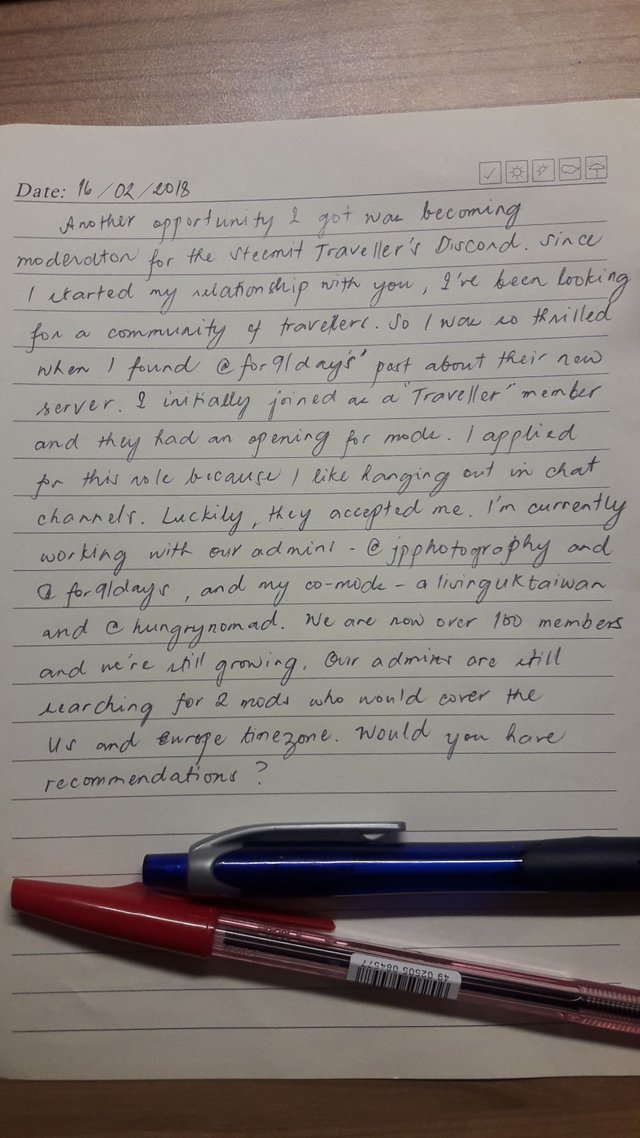 Date: 16/02/2018
Another opportunity I got was becoming
moderator for the Steemit Traveller's Discord. Since
I started my relationship with you, I've been looking
for a community of travellers. So I was so thrilled
when I found @for91days's' post about their new
server. I initially joined as a "Traveller" member
and they had an opening for mods. I applied
for this role because I like hanging out in chat
channels. Luckily, they accepted me. I'm currently
working with our admins - @jpphotography and
@for91days, and my co-mods - @livinguktaiwan
and @hungrynomad. We are now over 100 members
and we're still growing. Our admins are still
searching for 2 mods who would cover the
US and Europe timezone. Would you have
recommendations?
49 02505 084577